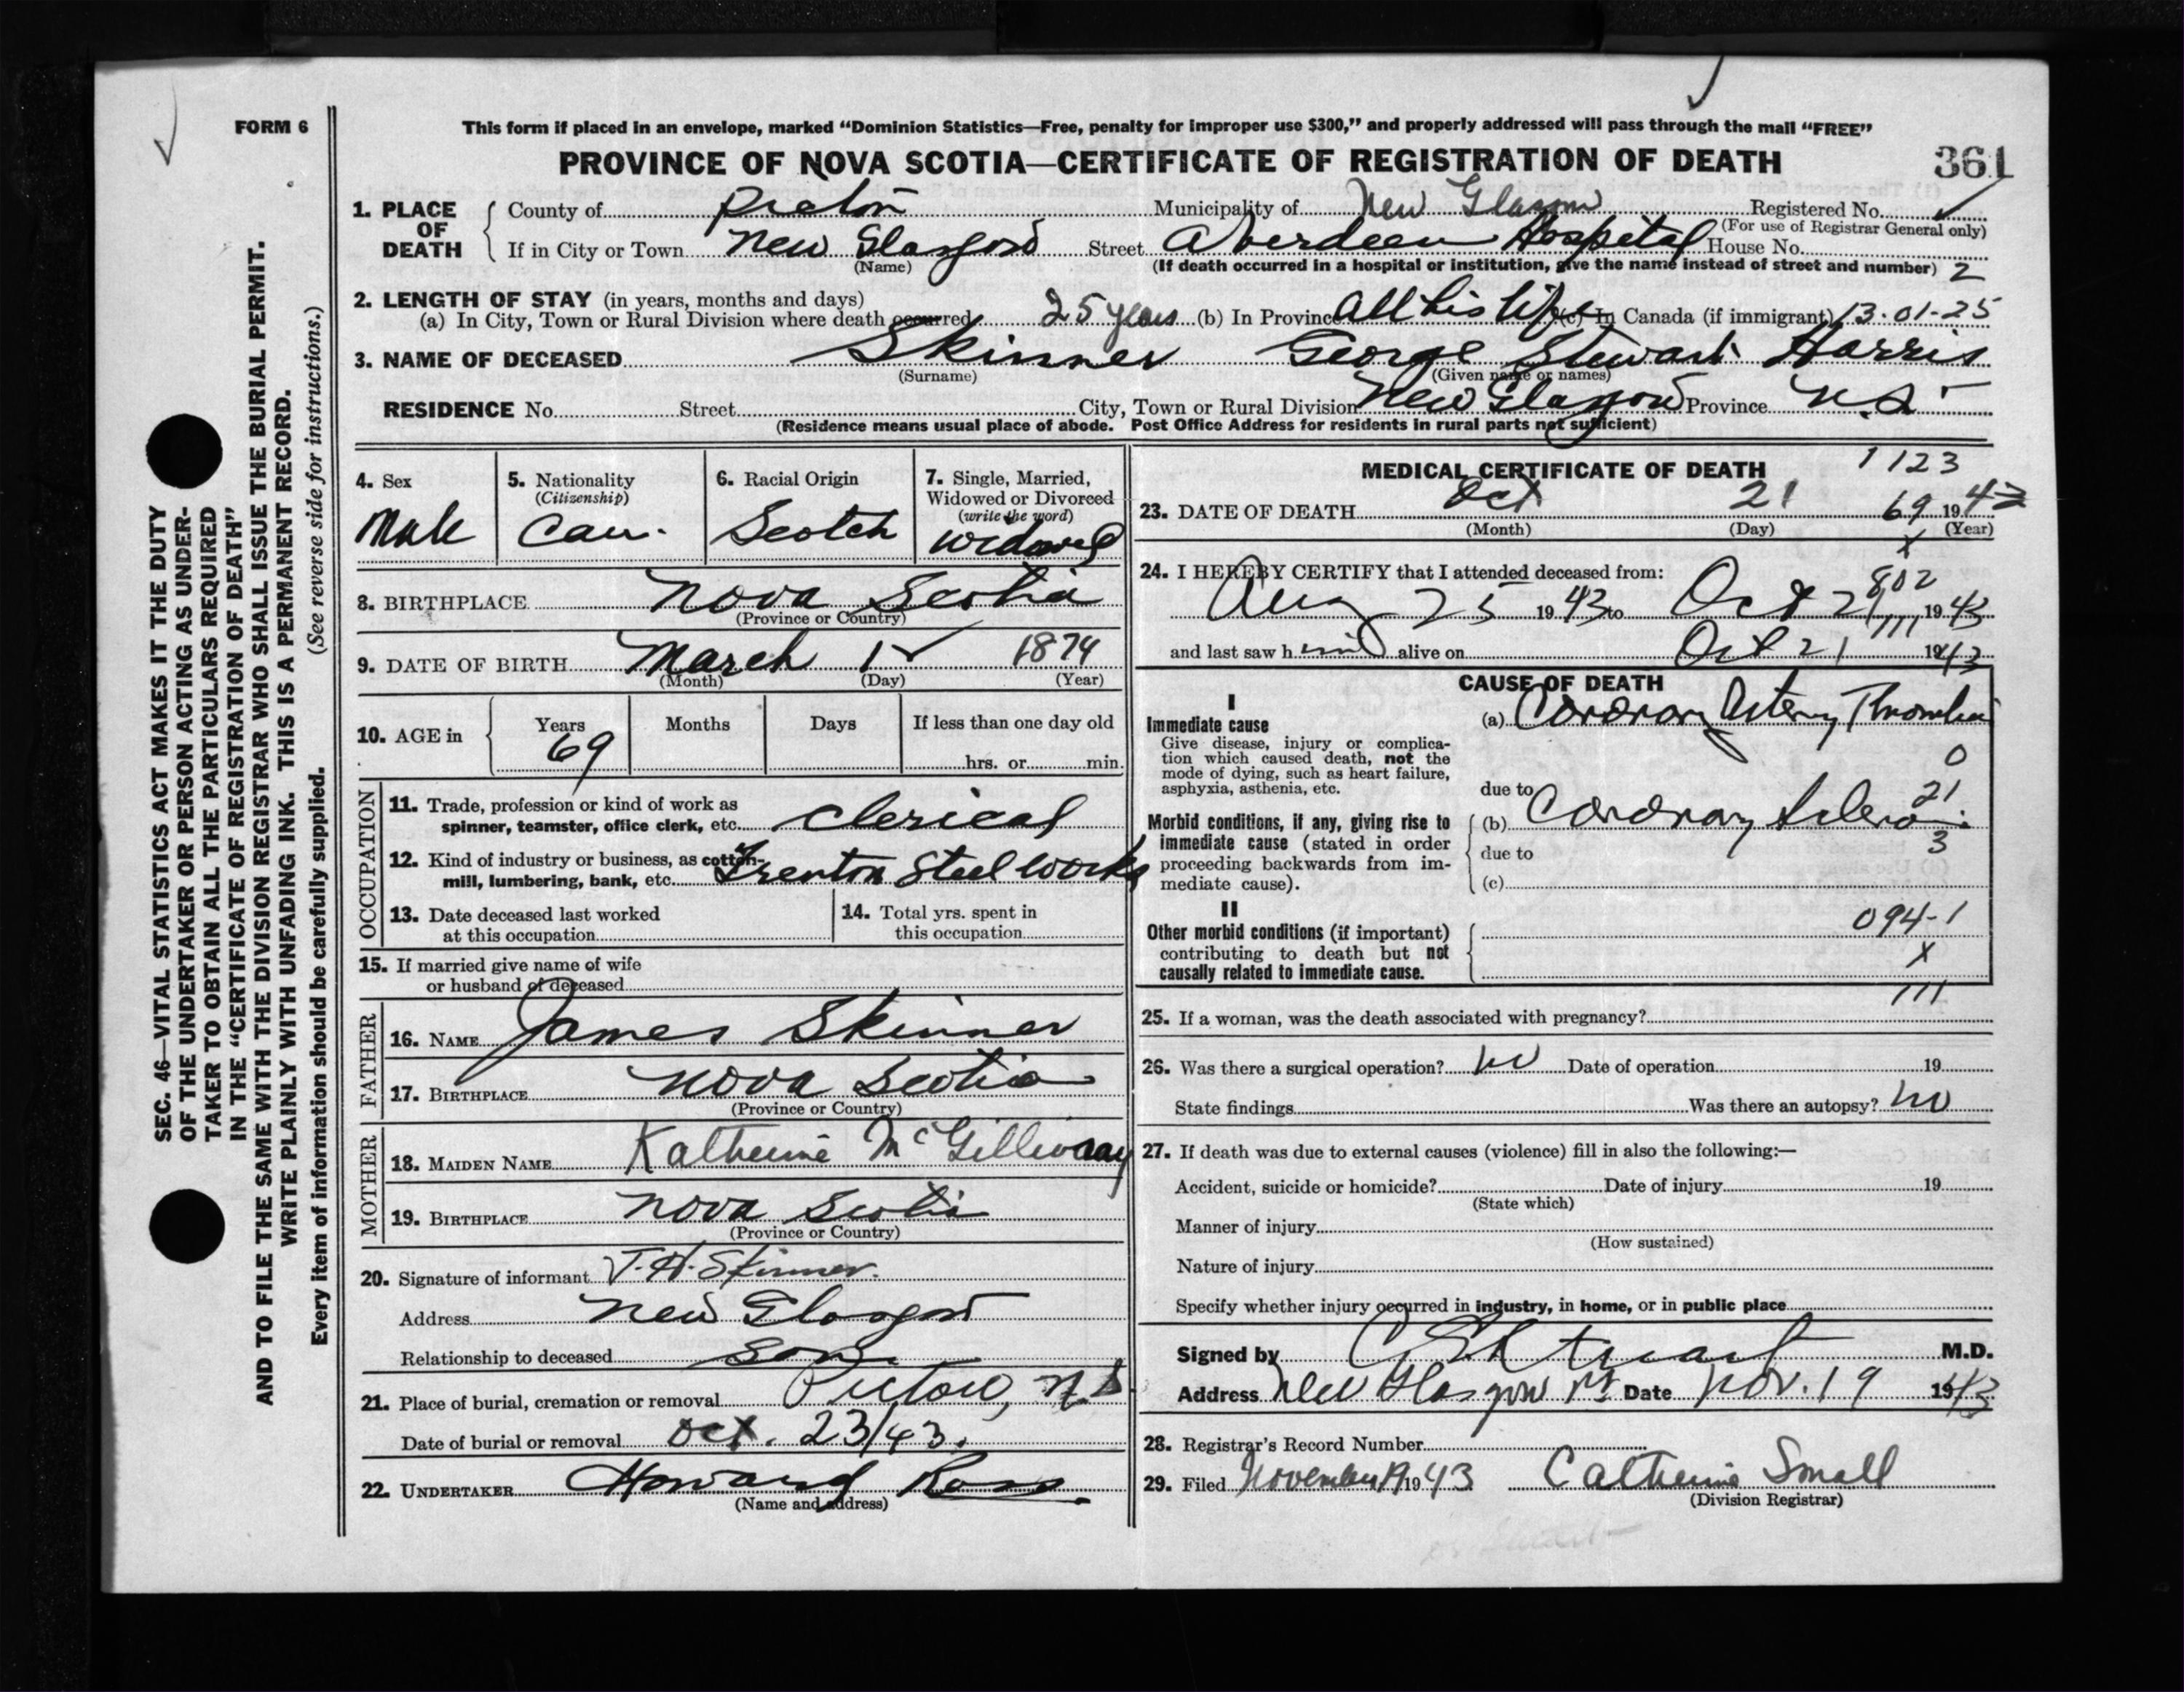 FORM 6
This form if placed in an envelope, marked "Dominion Statistics—Free, penalty for improper use $300," and properly addressed will pass through the mail "FREE"
PROVINCE OF NOVA SCOTIA—CERTIFICATE OF REGISTRATION OF DEATH 361
1. PLACE OF DEATH County of Pictou Municipality of New Glasgow Registered No.
(For use of Registrar General only)
If in City or Town New Glasgow Street Aberdeen Hospital House No.
(Name) (If death occurred in a hospital or institution, give the name instead of street and number) 2
2. LENGTH OF STAY (in years, months and days)
(a) In City, Town or Rural Division where death occurred 25 years (b) In Province All his life (c) In Canada (if immigrant) 13-01-25
3. NAME OF DECEASED Skinner George Stewart Harris
(Surname) (Given name or names)
RESIDENCE No. Street City, Town or Rural Division New Glasgow Province N.S.
(Residence means usual place of abode. Post Office Address for residents in rural parts not sufficient)
4. Sex Male
5. Nationality (Citizenship) Can.
6. Racial Origin Scotch
7. Single, Married, Widowed or Divorced (write the word) Widowed
8. BIRTHPLACE Nova Scotia
(Province or Country)
9. DATE OF BIRTH March 1 1874
(Month) (Day) (Year)
10. AGE in Years 69 Months Days If less than one day old
hrs. or min.
OCCUPATION
11. Trade, profession or kind of work as spinner, teamster, office clerk, etc. Clerical
12. Kind of industry or business, as cotton-mill, lumbering, bank, etc. Trenton Steel Works
13. Date deceased last worked at this occupation
14. Total yrs. spent in this occupation
15. If married give name of wife or husband of deceased
FATHER
16. NAME James Skinner
17. BIRTHPLACE Nova Scotia
(Province or Country)
MOTHER
18. MAIDEN NAME Katherine McGillivray
19. BIRTHPLACE Nova Scotia
(Province or Country)
20. Signature of informant J. H. Skinner.
Address New Glasgow
Relationship to deceased Son
21. Place of burial, cremation or removal Pictou, N.S.
Date of burial or removal Oct. 23/43.
22. UNDERTAKER Howard Ross
(Name and address)
MEDICAL CERTIFICATE OF DEATH 1123
23. DATE OF DEATH Oct 21 69 1943
(Month) (Day) (Year)
x
24. I HEREBY CERTIFY that I attended deceased from:
802
Aug 25 1943 to Oct 21 1943
111
and last saw him alive on Oct 21 1943
CAUSE OF DEATH
I
Immediate cause
Give disease, injury or complication which caused death, not the mode of dying, such as heart failure, asphyxia, asthenia, etc.
(a) Coronary Artery
0
due to
21
Morbid conditions, if any, giving rise to immediate cause (stated in order proceeding backwards from immediate cause).
(b) Coronary
3
due to
(c)
II
Other morbid conditions (if important) contributing to death but not causally related to immediate cause.
094-1
X
111
25. If a woman, was the death associated with pregnancy?
26. Was there a surgical operation? No Date of operation 19
State findings Was there an autopsy? No
27. If death was due to external causes (violence) fill in also the following:—
Accident, suicide or homicide? Date of injury 19
(State which)
Manner of injury
(How sustained)
Nature of injury
Specify whether injury occurred in industry, in home, or in public place
Signed by M.D.
Address New Glasgow Date Nov. 19 1943
28. Registrar's Record Number
29. Filed November 19 1943 Catherine Small
(Division Registrar)
SEC. 46—VITAL STATISTICS ACT MAKES IT THE DUTY
OF THE UNDERTAKER OR PERSON ACTING AS UNDER-
TAKER TO OBTAIN ALL THE PARTICULARS REQUIRED
IN THE "CERTIFICATE OF REGISTRATION OF DEATH"
AND TO FILE THE SAME WITH THE DIVISION REGISTRAR WHO SHALL ISSUE THE BURIAL PERMIT.
WRITE PLAINLY WITH UNFADING INK. THIS IS A PERMANENT RECORD.
Every item of information should be carefully supplied. (See reverse side for instructions.)